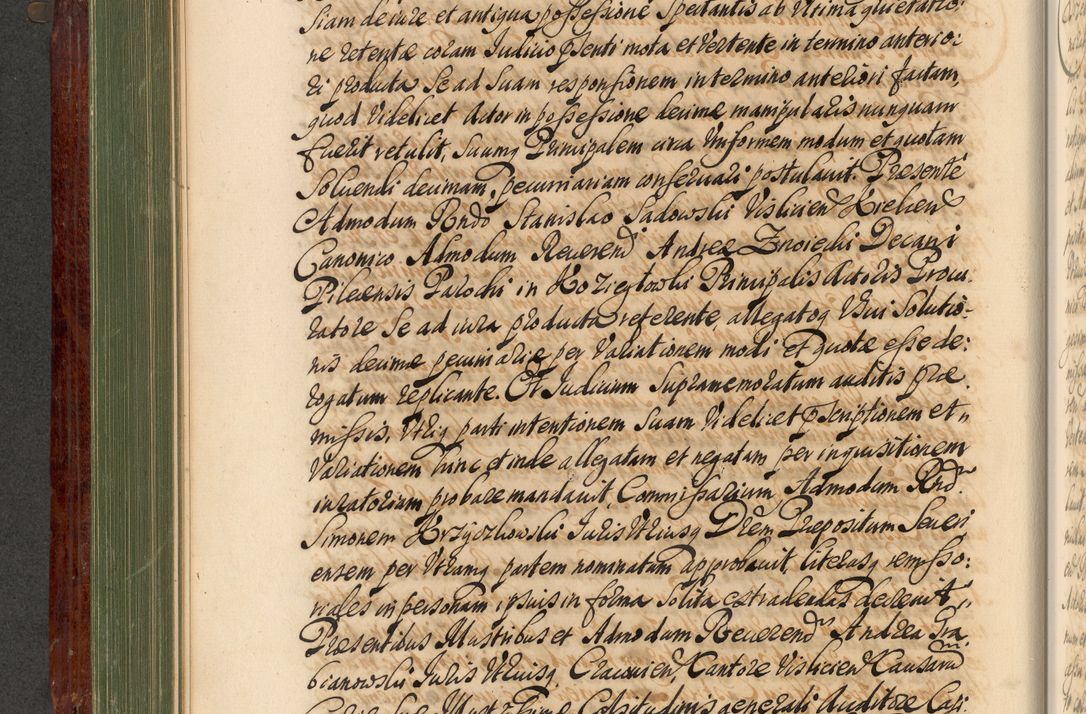 siam de iure et antiqua possessione spectantis ab Ultima gñeratio:
ne retentæ coram Iudicio pñsenti mota et Vertente in termino anterio:
ri producta Se ad Suam responsionem in termino anteriori factam,
quod Videlicet Actor in possessione decimæ manipularis nunquam
fuerit retulit, Suumq Principalem circa Uniformem modum et quotam
Soluendi decimam, pecuniariam conseruari postulauit. Præsente
Admodum Rndo Stanislao Sadowski Vislicien Kielcien
Canonico Admodum Reuerendi Andreæ Znoiecki Decani
Pilcensis Parochi in Koziegłowki Principalis Actoris Procu:
ratore Se ad iura producta referente, allegatoq Usui Solutio:
nis decimæ pecuniariæ per Variationem modi et quotæ esse de:
rogatum replicante. Et Iudicium Supramemoratum auditis præ:
missis, Utriq parti intentionem Suam Videlicet pscriptionem et
Variationem hinc et inde allegatam et negatam per inquisitionem
iuratoriam probare mandauit, Commissarium Admodum Rnd
Simonem Krzyczkowski Iuris Utriusq Drem Præpositum Seueri
ensem per Utramq partem nominatum approbauit literasq remisso:
riales in personam ipsius in forma Solita extradendas decreuit
Præsentibus Illustribus et Admodum Reuerend Andrea Tra
bianowski Iuris Utriusq Cracouien, Cantore Vislicien Causarum
Celsitudinis generali Auditore